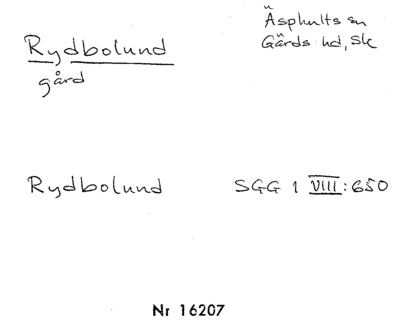 Rydbolund
gård
Äsphults sn
Gärds hd, Sk
Rydbolund SGG 1 VIII:650
Nr 16207